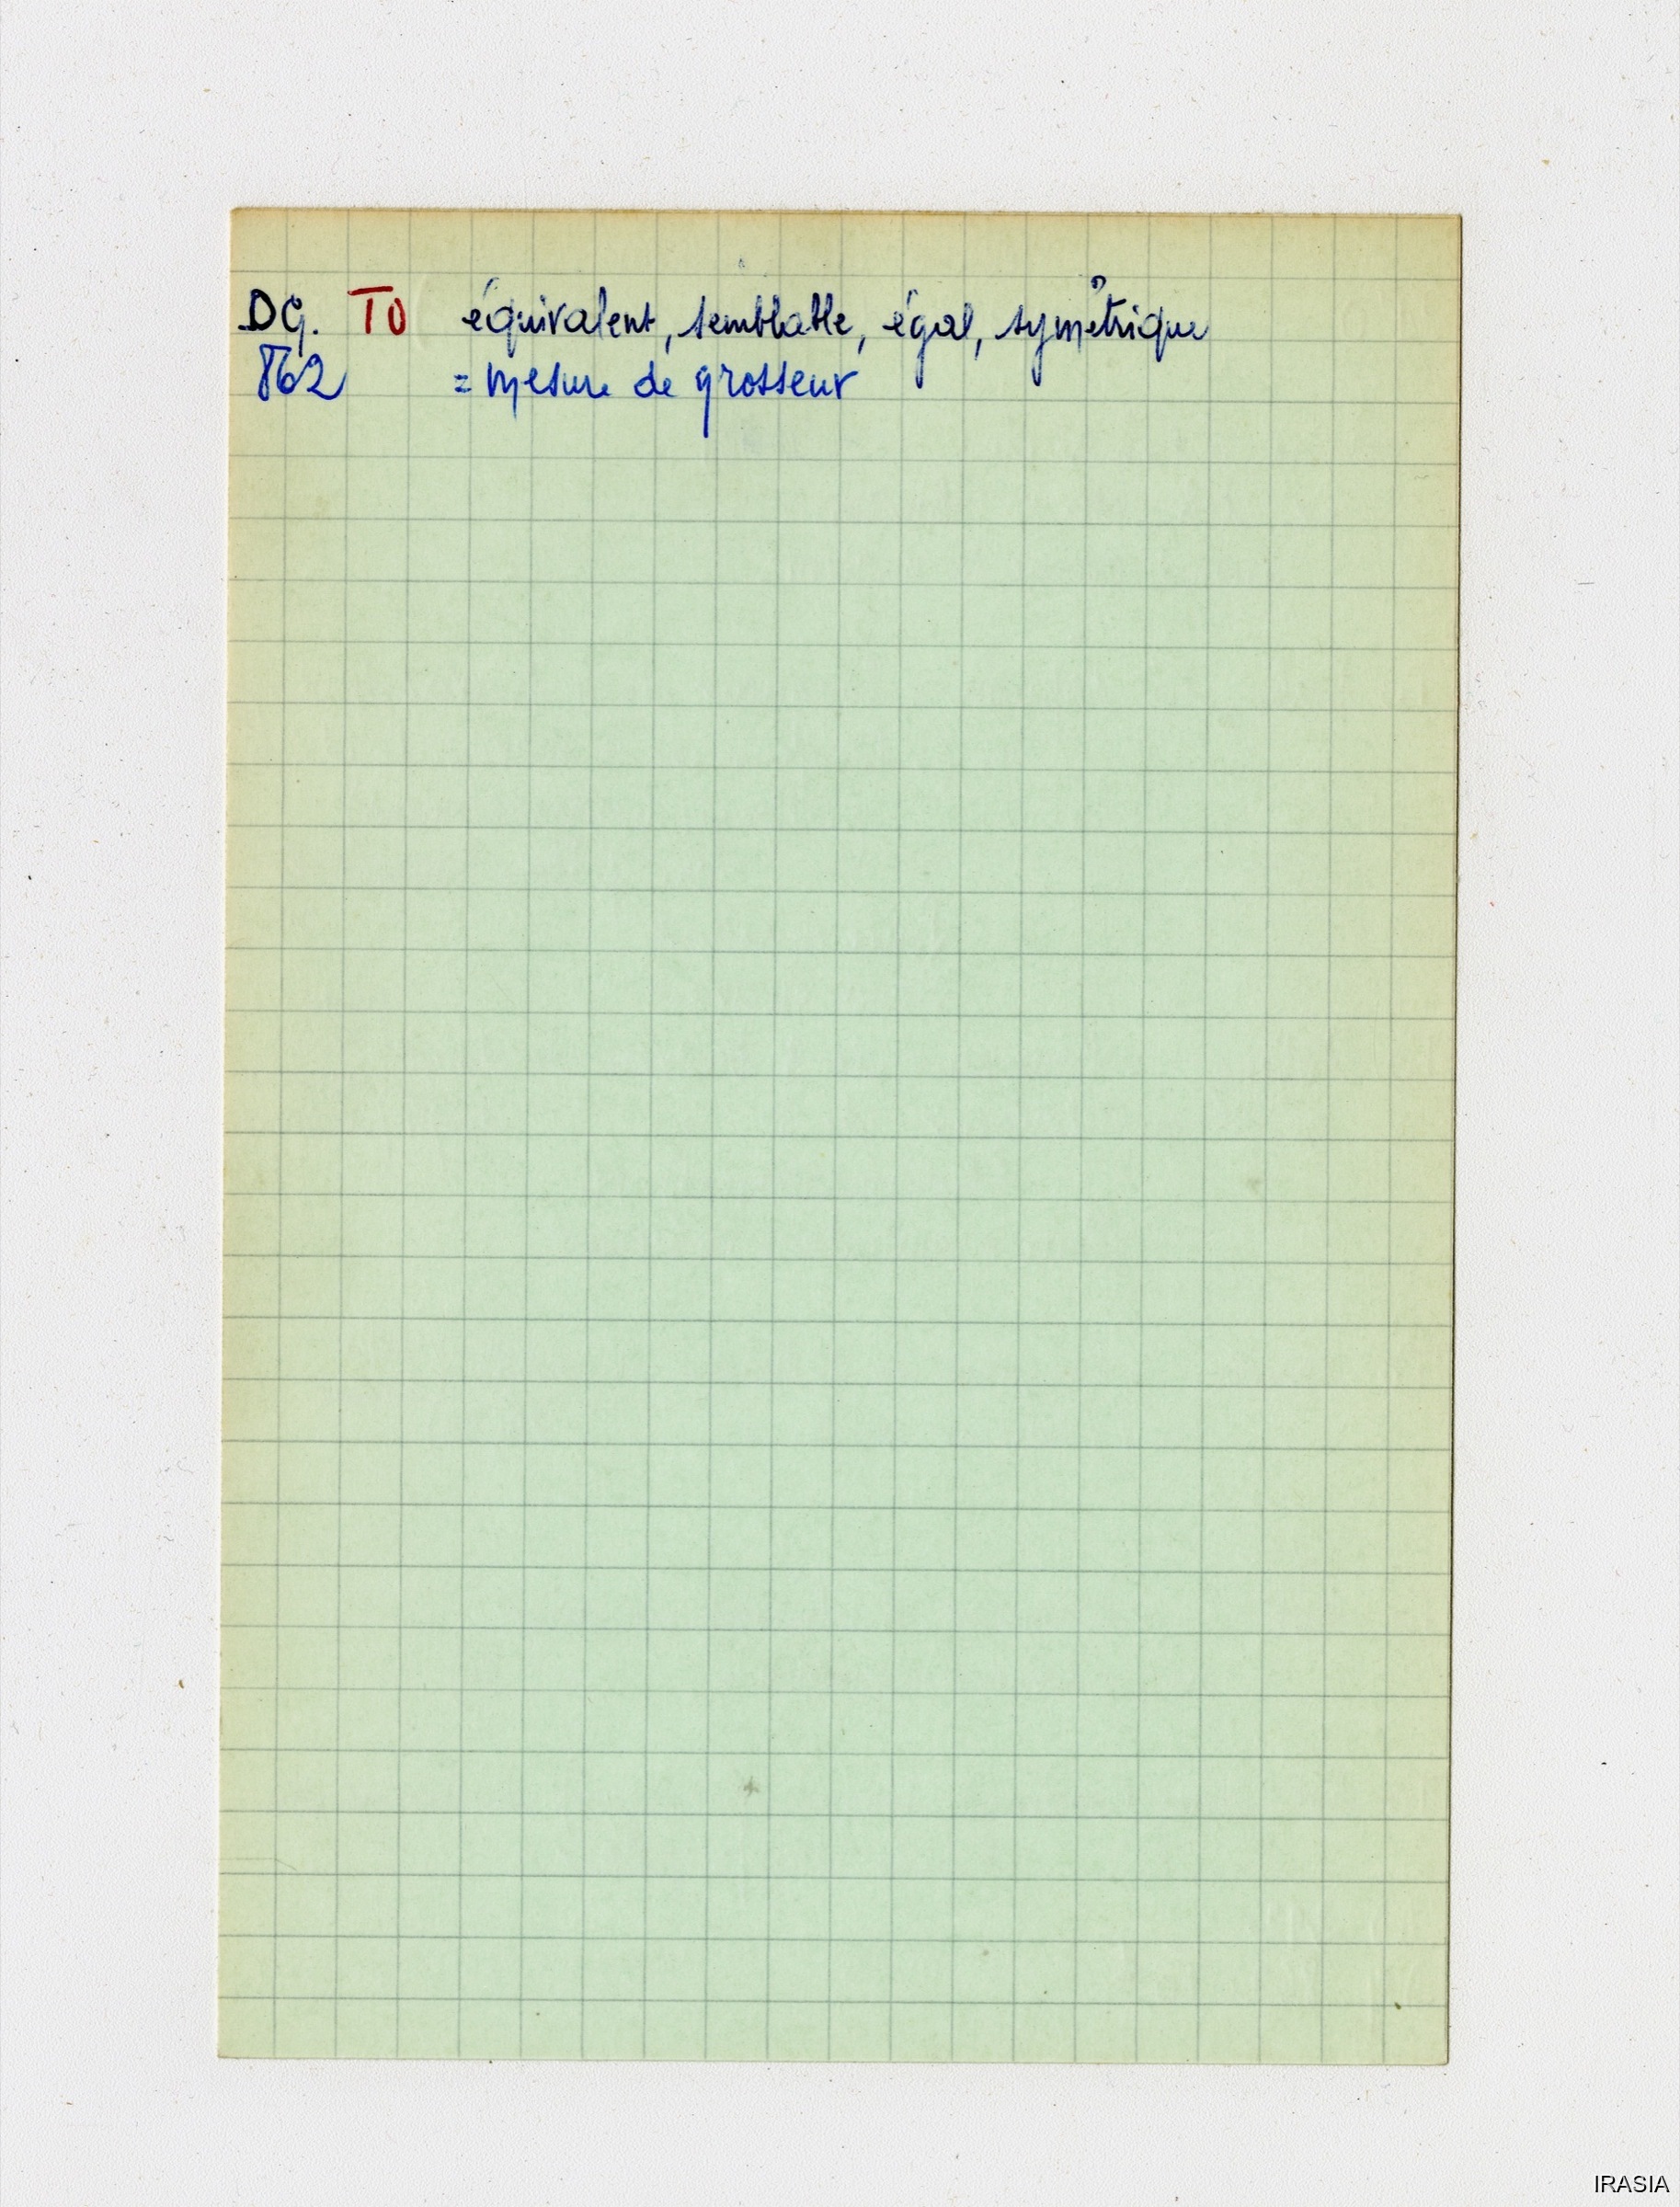 DG. TO équivalent, semblable, égal, symétrique
862 = mesure de grosseur
IRASIA